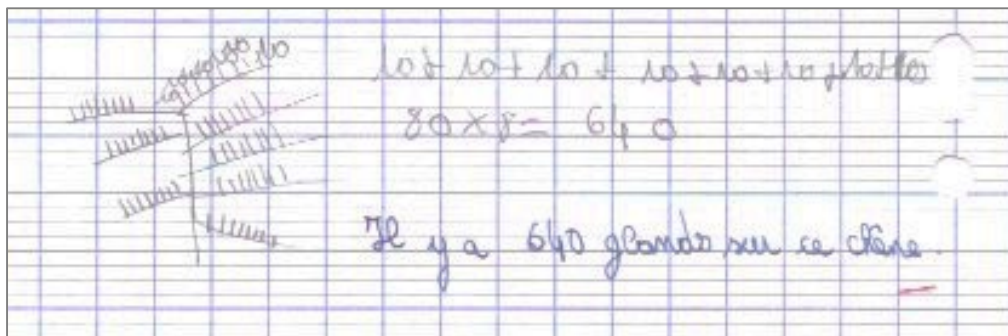 10
10+10+10+10+10+10+10+10
80×8= 640
Il y a 640 glands sur ce chêne.